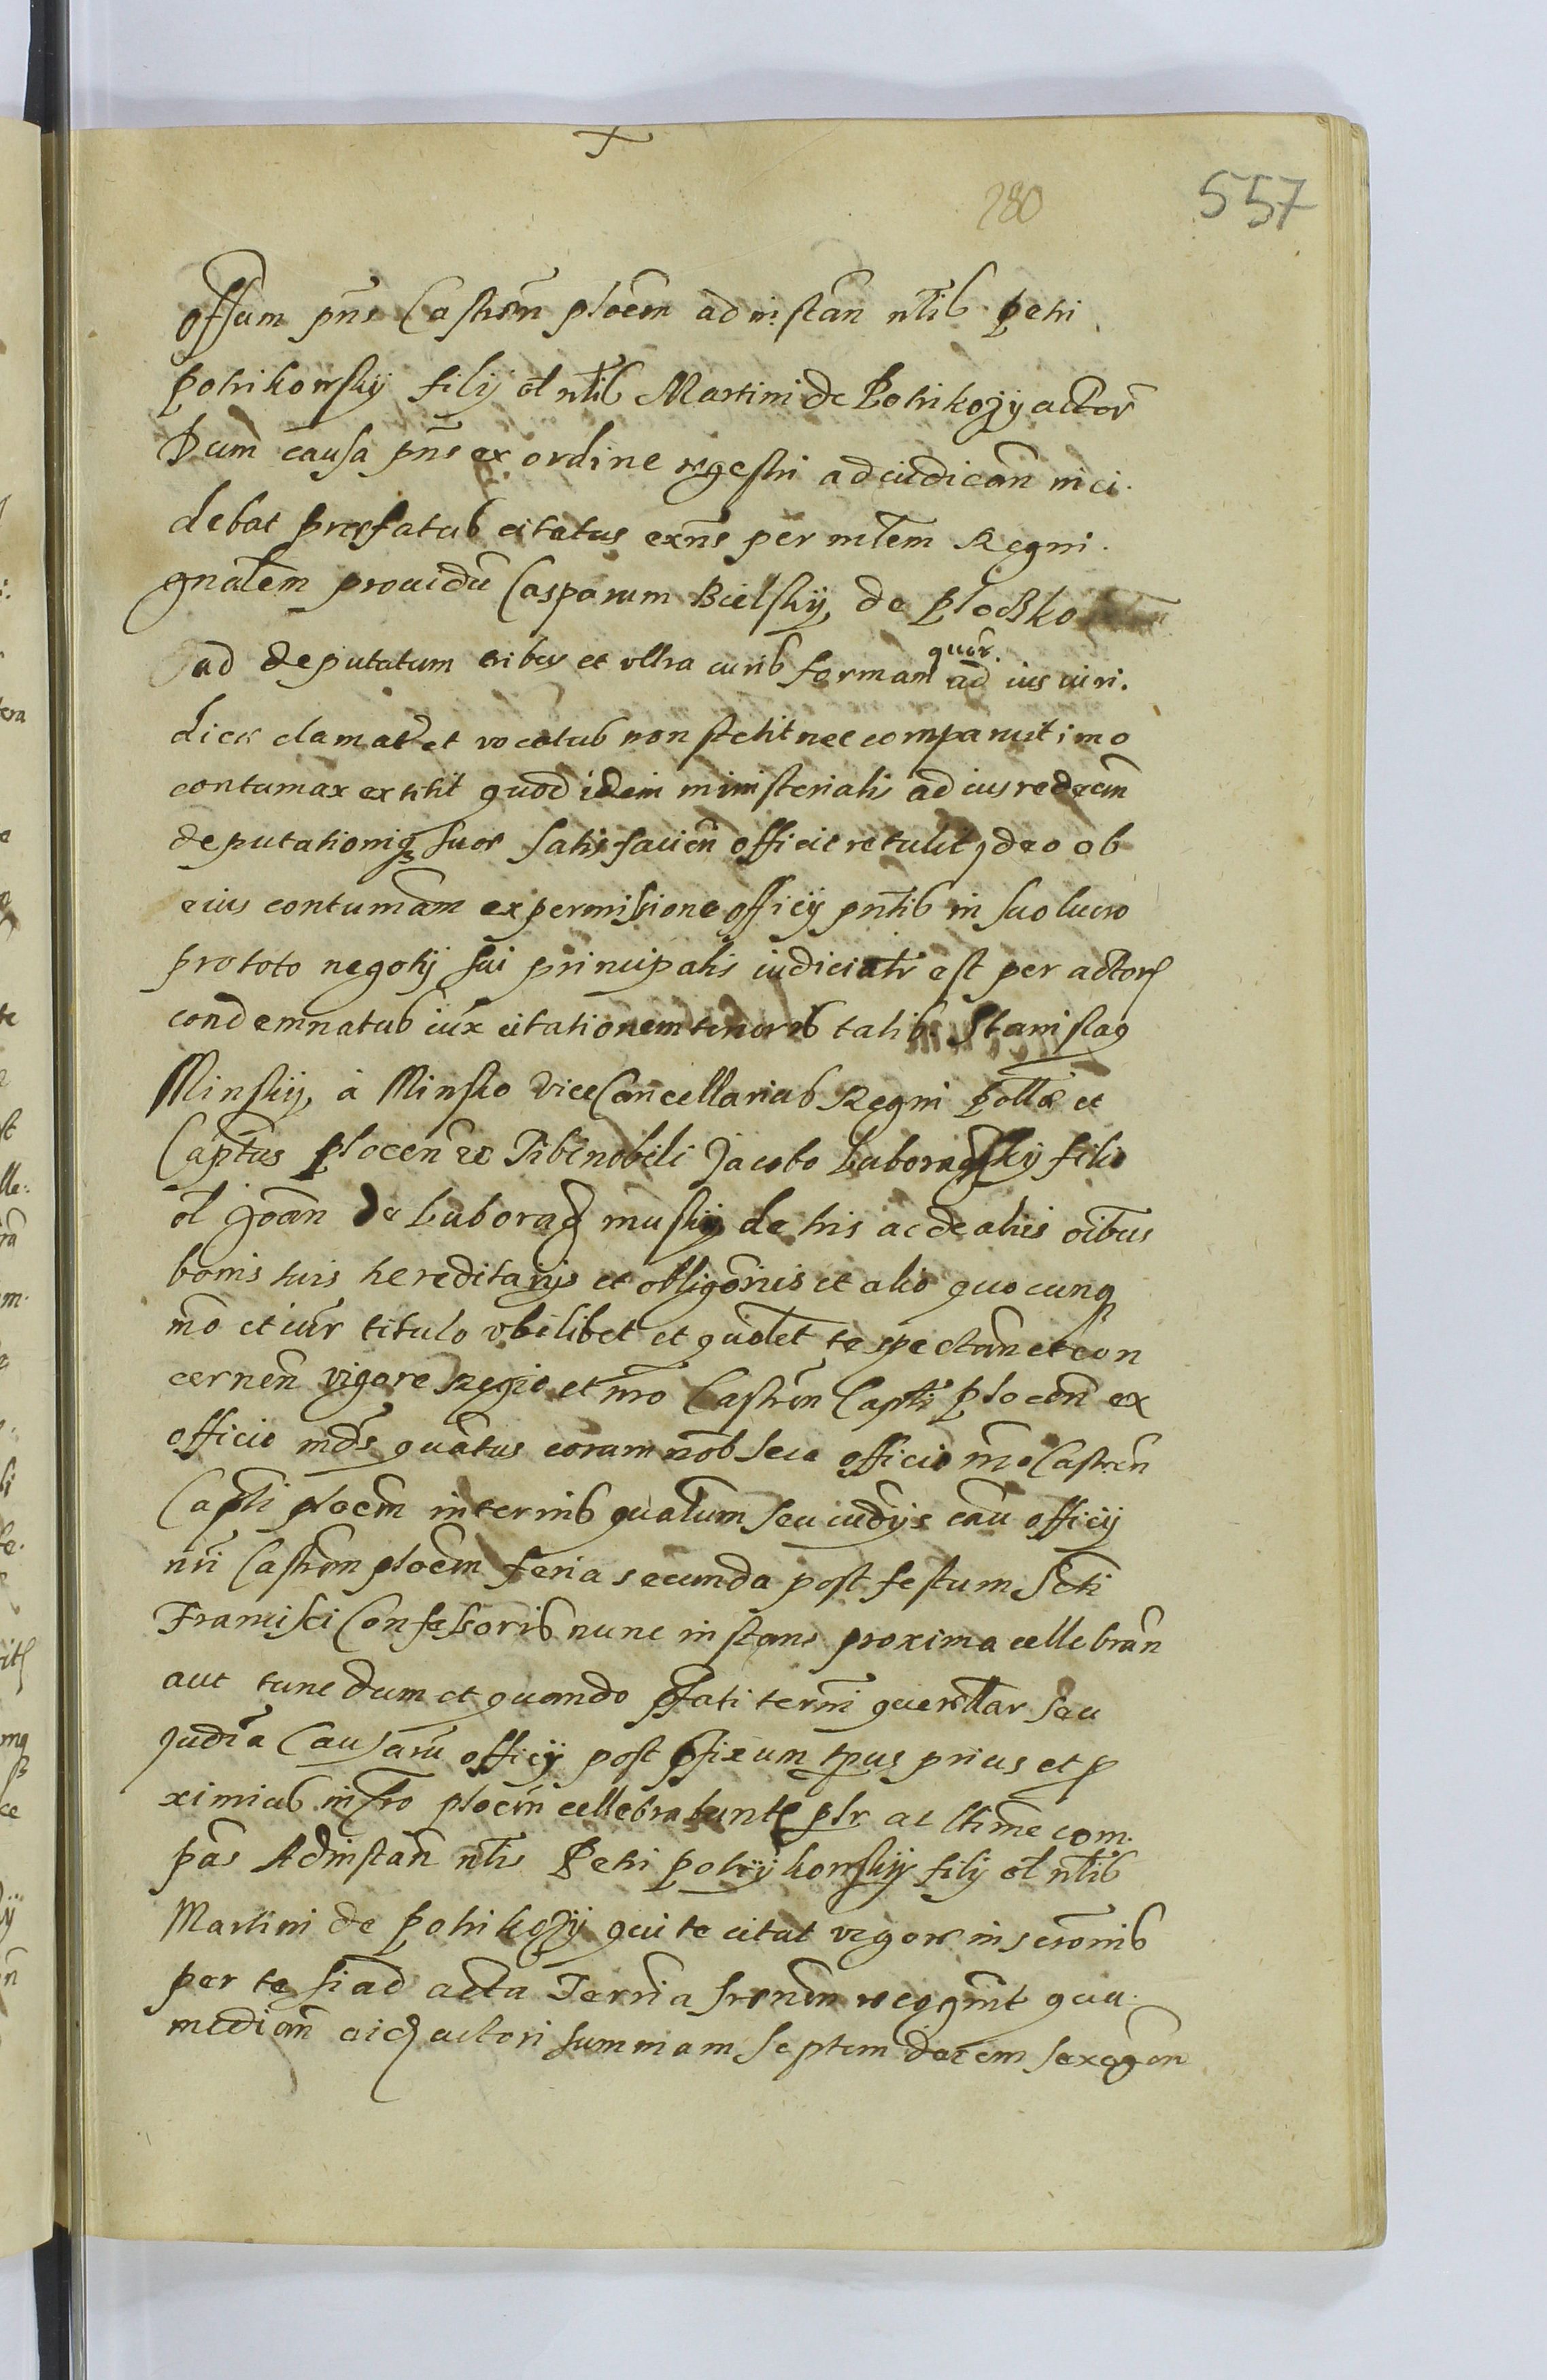 280 557
offum pns Castren plocen ad instan nlis Petri
Potrikowskij filij ol nlis Martini de Potrikozÿ actor
Dum causa pns ex ordine regestri ad iudican inci
debat prefatus citatus exns per mlem Regni
gnalem prouidu Casparum Bielskij de Plocko
ad deputatum tribus et vltra curis forman quar. ad ius iuri.
dice clamat et vocatus non stetit nec comparuit imo
contumax extitit quod idem ministerialis ad ius redeun
deputationiq suor satisfacien officio retulit ideo ob
eius contumam ex permissione officij pntis in suo lucro
pro toto negotij sui principalis iudicialr est per actor
condemnatus iux citationem tenoris talis. Stanislaq
Minskij, à Minsko ViceCancellarius Regni Pollæ et
Captus Plocen zc Tibi nobili Jacobo Luboradskij filio
ol Joan de Luborad muskij de his ac de aliis oibus
bonis tuis hereditarijs et obligorijs et alio quocunq
mo et iur titulo vbilibet et quolet te spectan et con
cernen vigore Regio et nro Castren Capti Plocen ex
officio mds quatus coram nob seu officio nro Castren
Capti plocen in terminis querelarum seu iudijs cau officij
nri Castren plocen feria secunda post festum Scti
Francisci Confessoris nunc instans proxima cellebran
aut tunc dum et quando pfati termi querellar seu
Judia Causaru officij post pfixum tpus prius et p
ximius in Cro plocen cellebrabuntr plr ac ltime com.
pas Ad instan nlis Petri Potrijkowskij filij ol nlis
Martini de Potrikozij qui te citat vigore inscronis
per te si ad acta Terria Srpnen recognit qua
median eid actori summam septemdecem sexagen